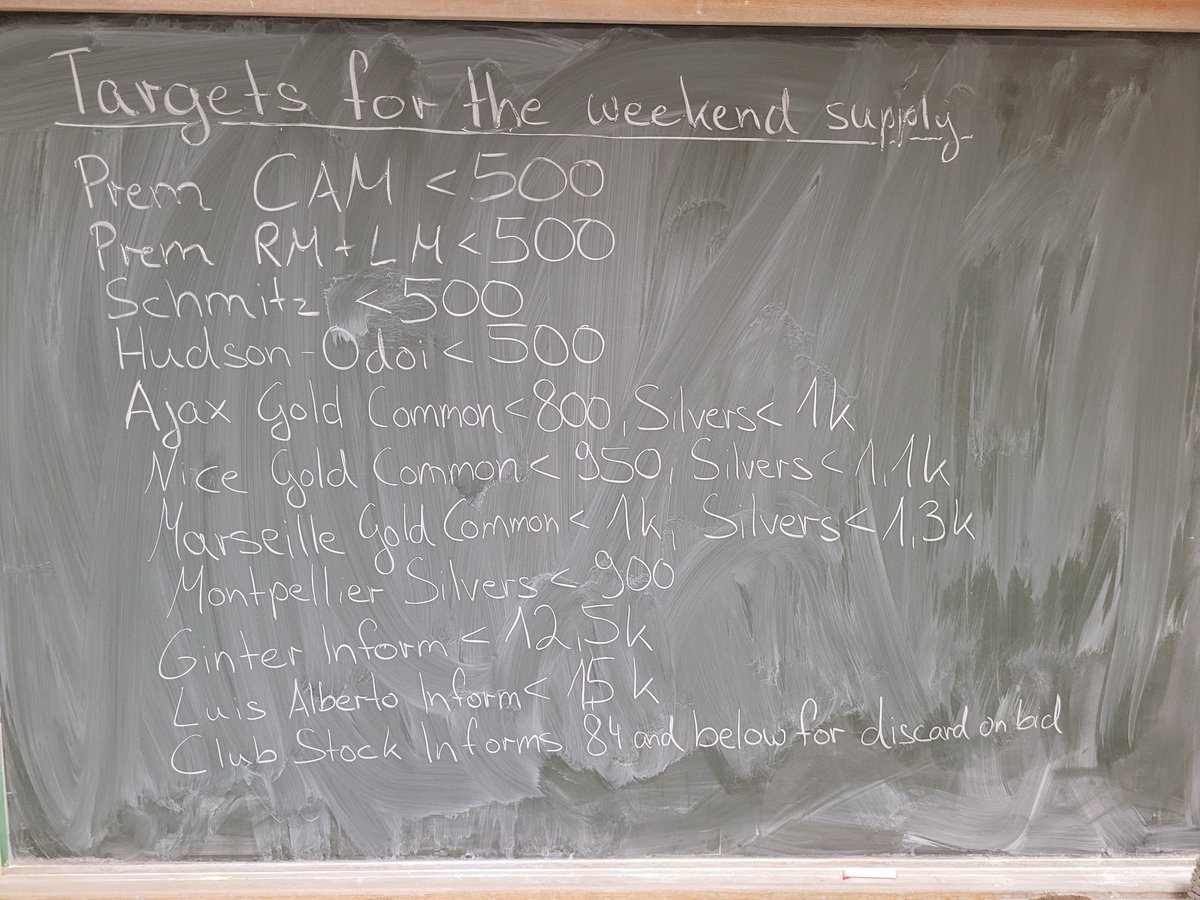 Targets for the weekend supply
Prem CAM < 500
Prem RM + LM < 500
Schmitz < 500
Hudson-Odoi < 500
Ajax Gold Common < 800, Silvers < 1k
Nice Gold Common < 950, Silvers < 1,1k
Marseille Gold Common < 1k, Silvers < 1,3k
Montpellier Silvers < 900
Ginter Inform < 12,5k
Luis Alberto Inform < 15k
Club Stock Informs 84 and below for discard on bid